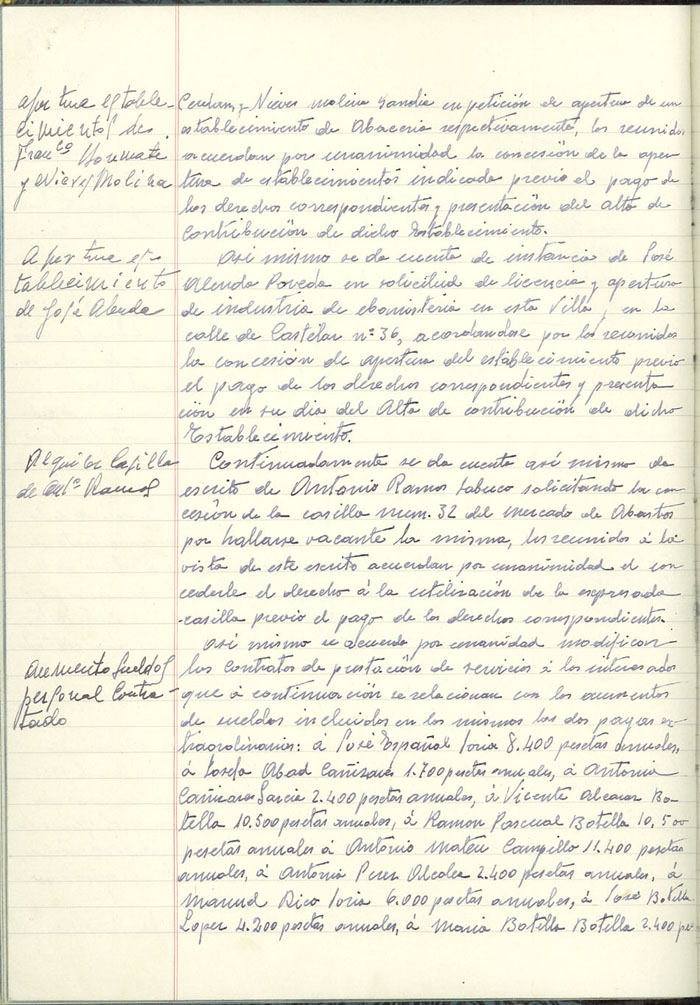 apertura estable-
cimientos de
Franco Mormate
y Nieves Molina
Cerdan y Nieves Molina Gandia en petición de apertura de un
establecimiento de Abaceria respectivamente, los reunidos
acuerdan por unanimidad la concesión de la aper-
tura de establecimientos indicada previo el pago de
los derechos correspondientes y presentación del alta de
contribución de dicho Establecimiento.
Apertura es-
tablecimiento
de José Aberda
Así mismo se da cuenta de instancia de José
Poveda en solicitud de licencia y apertura
de industria de ebanisteria en esta Villa, en la
calle de Castelar nº 36, acordandose por los reunidos
la concesión de apertura del establecimiento previo
el pago de los derechos correspondientes y presenta
ción en su dia del Alta de contribución de dicho
Establecimiento.
Alquiler Casilla
de Antº Ramos
Continuadamente se da cuenta así mismo de
escrito de Antonio Ramos Sabuco solicitando la con
cesión de la casilla num. 32 del mercado de Abastos
por hallarse vacante la misma, los reunidos á la
vista de este escrito acuerdan por unanimidad el con
cederle el derecho á la utilización de la expresada
casilla previo el pago de los derechos correspondientes.
Aumento Sueldos
personal Contra-
tado
Así mismo se acuerda por unanidad modificar
los contratos de prestación de servicios á los interesados
que á continuación se relacionan con los aumentos
de sueldos incluidos en los mismos las dos pagas ex-
traordinarias: á José Español Soria 8.400 pesetas anuales,
á Josefa Abad Cañizares 1.700 pesetas anuales, á Antonia
Cañizares Garcia 2.400 pesetas anuales, á Vicente Alcaraz Bo-
tella 10.500 pesetas anuales, á Ramon Pascual Botella 10,500
pesetas anuales á Antonio Mateu Campillo 11.400 pesetas
anuales, á Antonia Perez Alcolea 2.400 pesetas anuales, á
Manuel Rico Soria 6.000 pesetas anuales, á José Botella
Lopez 4.200 pesetas anuales, á Maria Botella Botella 2.400 pe-